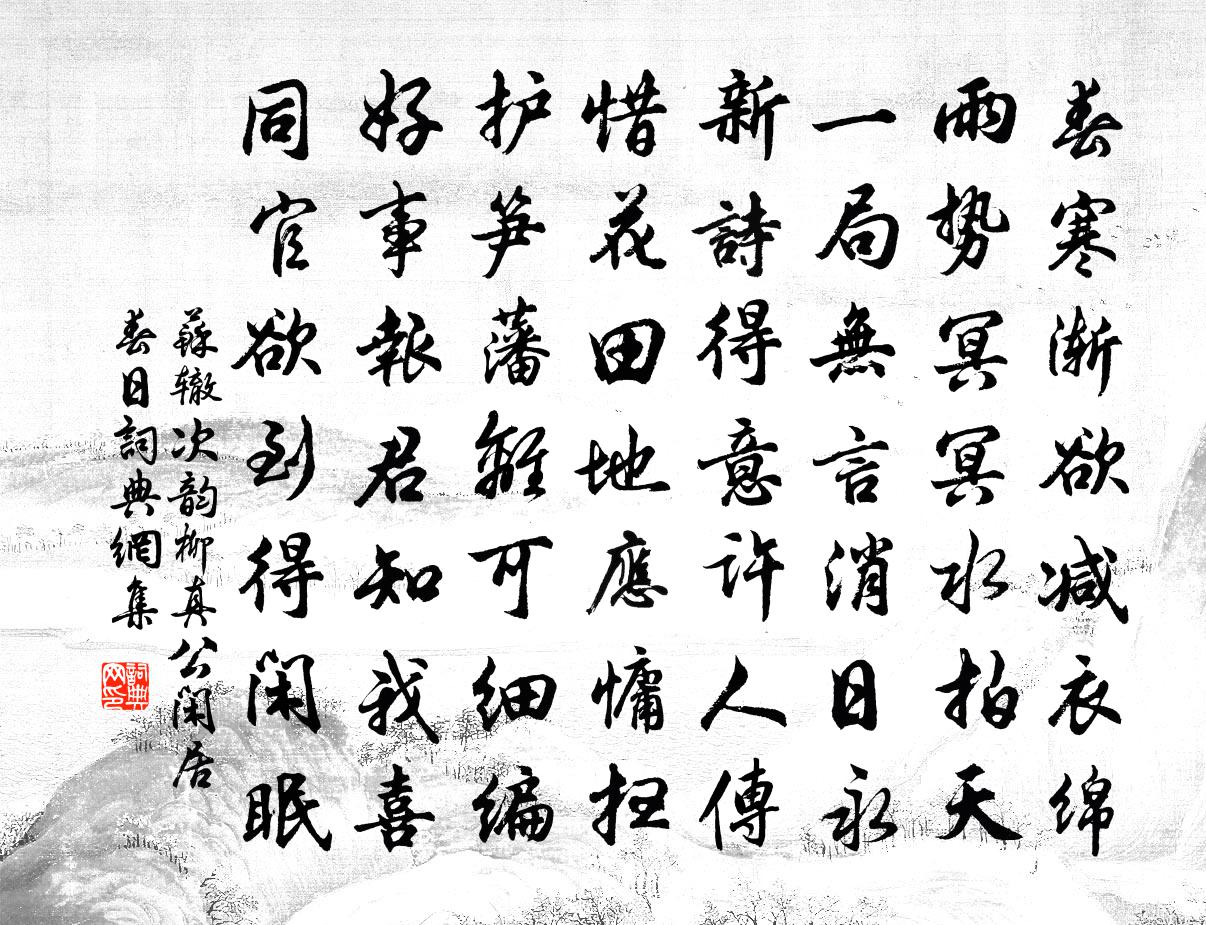 春寒渐欲减衣绵
雨势冥冥水拍天
一局無言消日永
新詩得意許人傳
惜花田地應慵扫
护笋藩篱可细编
好事報君知我喜
同官欲到得闲眠
蘇辙次韵柳真公闲居
春日詞典網集
詞典网印